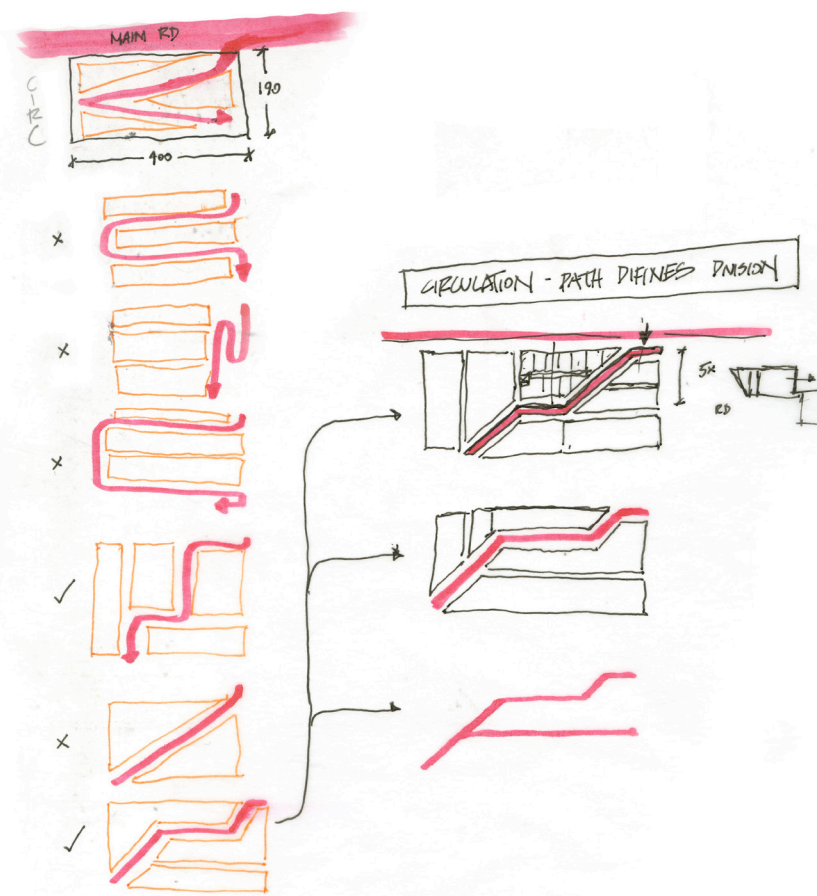 MAIN RD
CIRC
190
400
CIRCULATION - PATH DIFINES DIVISION
5x
RD